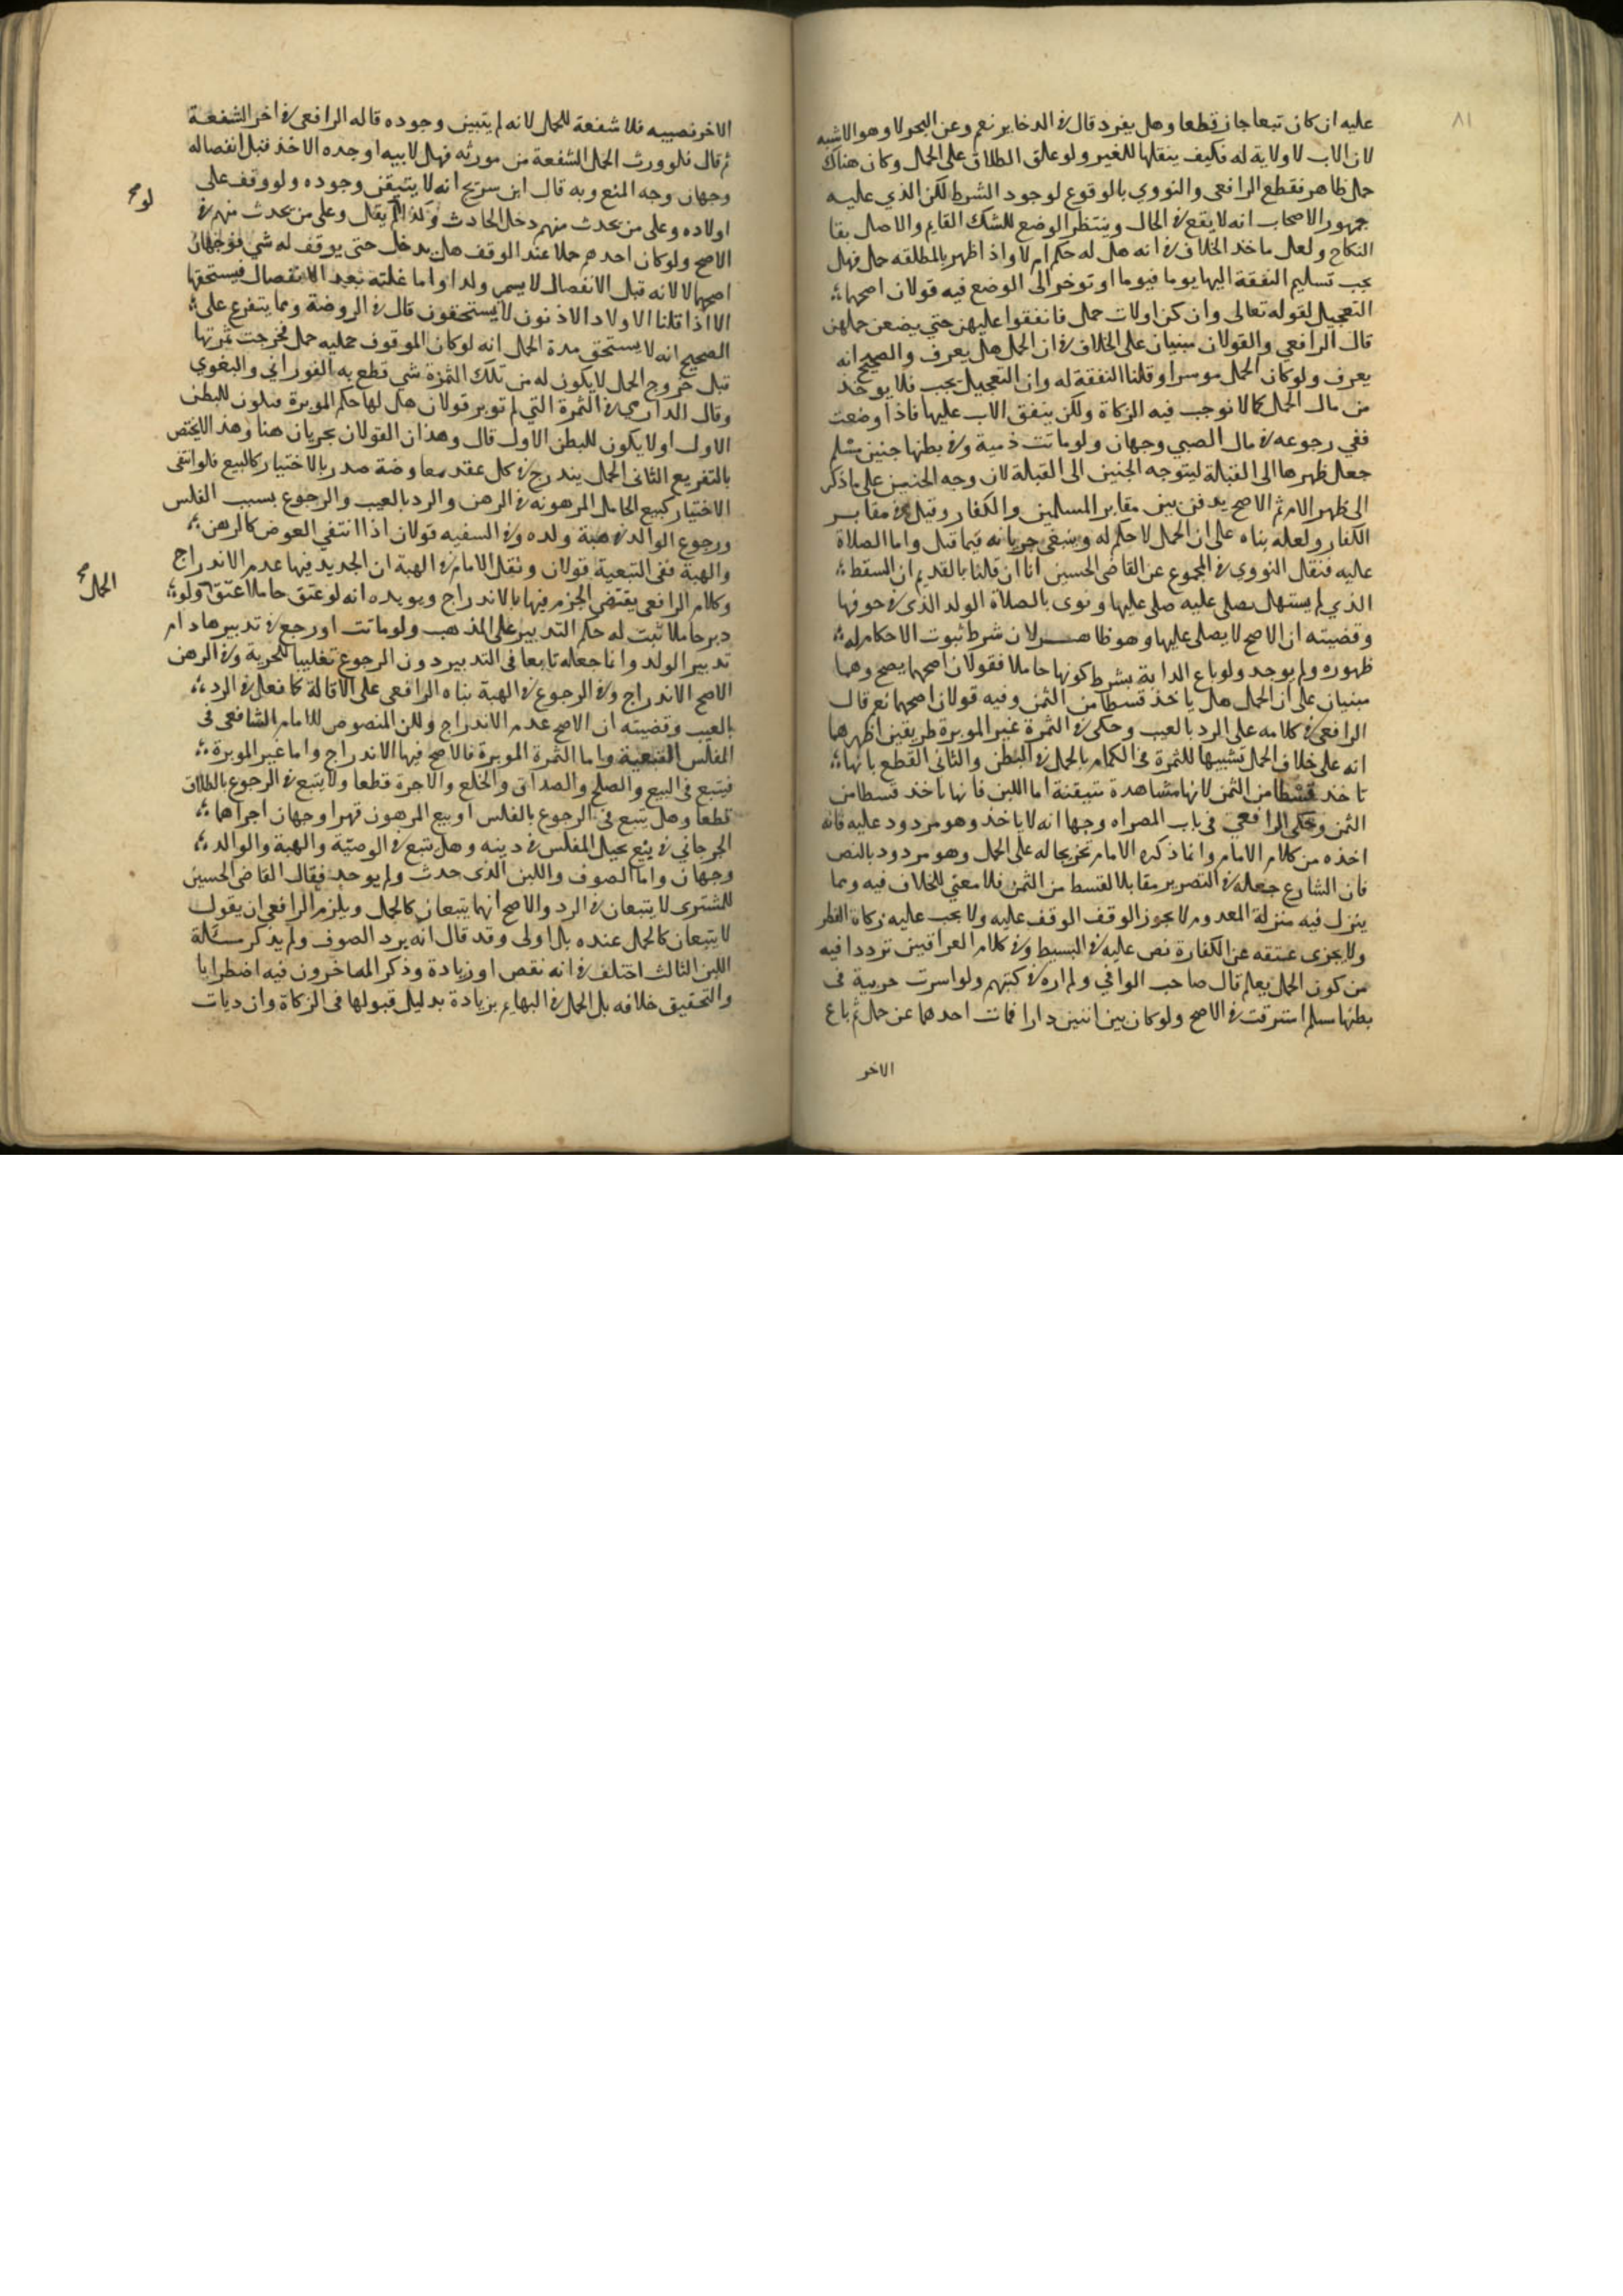 ٨١
عليه ان كان تبعا جاز قطعا وهل يفرد قال في الدخاير نعم وعن البحر لا وهو الاشبه
لان الاب لا ولاية له فكيف ينقلها للغير ولو علق الطلاق على الحمل وكان هناك
حمل ظاهر فقطع الرافعي والنووي بالوقوع لوجود الشرط لكن الذي عليه
جمهور الاصحاب انه لا يقع في الحال وينتظر الوضع للشك القايم والاصل بقا
النكاح ولعل ماخذ الخلاف في انه هل له حكم ام لا واذا ظهر بالمطلقه حمل فهل
يجب تسليم النفقة اليها يوما فيوما او توخر الى الوضع فيه قولان اصحهما
التعجيل لقوله تعالى وان كن اولات حمل فانفقوا عليهن حتي يضعن حملهن
قال الرافعي والقولان مبنيان على الخلاف في ان الحمل هل يعرف والصحيح انه
يعرف ولو كان الحمل موسرا وقلنا النفقة له وان التعجيل يجب فلا يوخذ
من مال الحمل كما لا نوجب فيه الزكاة ولكن ينفق الاب عليها فاذا وضعت
ففي رجوعه في مال الصبي وجهان ولو ماتت ذمية وفي بطنها جنين مسلم
جعل ظهرها الى القبلة ليتوجه الجنين الى القبلة لان وجه الجنين على ما ذكر
الى ظهر الام ثم الاصح يدفن بين مقابر المسلمين والكفار وقيل في مقابر
الكفار ولعله بناه على ان الحمل لا حكم له وينبغي جريانه فيما قبل واما الصلاة
عليه فنقل النووي في المجموع عن القاضي الحسين انا ان قلنا بالقديم ان السقط
الذي لم يستهل يصلي عليه صلي عليها ونوى بالصلاة الولد الذي في جوفها
وقضيته ان الاصح لا يصلى عليها وهو ظاهر لان شرط ثبوت الاحكام له
ظهوره ولم يوجد ولو باع الدابة بشرط كونها حاملا فقولان اصحهما يصح وهما
مبنيان على ان الحمل هل ياخذ قسطا من الثمن وفيه قولان اصحهما نعم قال
الرافعي في كلامه على الرد بالعيب وحكى في الثمرة غير الموبرة طريقين اظهرهما
انه على خلاف الحمل تشبيها للثمرة في الكمام بالحمل في البطن والثاني القطع بانها
تاخذ قسطا من الثمن لانها مشاهدة متيقنة اما اللبن فانها ياخذ قسطا من
الثمن وحكى الرافعي في باب المصراه وجها انه لا ياخذ وهو مردود عليه فانه
اخذه من كلام الامام وانما ذكره الامام تخريجا له على الحمل وهو مردود بالنص
فان الشارع جعله في التصرير مقابلا لقسط من الثمن فلا معنى للخلاف فيه ومما
ينزل فيه منزلة المعدوم لا يجوز الوقف الوقف عليه ولا يجب عليه زكاة الفطر
ولا يجزى عتقه عن الكفارة نص عليه في البسيط وفي كلام العراقيين ترددا فيه
من كون الحمل يعلم قال صاحب الوافي ولم اره في كتبهم ولو اسرت حربية في
بطنها مسلم استرقت في الاصح ولو كان بين اثنين دارا فمات احدهما عن حمل ثم باع
الاخر
الاخر نصيبه فلا شفعة للحمل لانه لم يتبين وجوده قاله الرافعي في اخر الشفعة
ثم قال فلو ورث الحمل الشفعة من مورثه فهل لابيه او جده الاخذ قبل انفصاله
وجهان وجه المنع وبه قال ابن سريج انه لا يتيقن وجوده ولو وقف على
لو صح
اولاده وعلى من يحدث منهم دخل الحادث وكذا لم يقل وعلى من يحدث منهم في
الاصح ولو كان احدهم حملا عند الوقف هل يدخل حتى يوقف له شي فوجهان
اصحهما لا لانه قبل الانفصال لا يسمى ولدا واما غلته بعد الانفصال فيستحقها
الا اذا قلنا الاولاد الاذنون لا يستحقون قال في الروضة ومما يتفرع على
الصحيح انه لا يستحق مدة الحمل انه لو كان الموقوف عليه حمل فخرجت ثمرتها
قبل خروج الحمل لا يكون له من تلك الثمرة شي قطع به الفوراني والبغوي
وقال الدارمي في الثمرة التي لم توبر قولان هل لها حكم الموبرة فتكون للبطن
الاول او لا يكون للبطن الاول قال وهذان القولان يجريان هنا وهذا لا يختص
بالتفريع الثاني الحمل يندرج في كل عقد معاوضة صدر بالاختيار كالبيع فلو انتفى
الاختيار كبيع الحامل المرهونه في الرهن والرد بالعيب والرجوع بسبب الفلس
ورجوع الوالد في هبة ولده وفي السفيه قولان اذا انتفي العوض كالرهن
والهبة ففى التبعية قولان ونقل الامام في الهبة ان الجديد فيها عدم الاندراج
وكلام الرافعي يقتضي الجزم فيها بالاندراج ويويده انه لو عتق حاملا عتق ولو
الحمل صح
دبر حاملا ثبت له حكم التدبير على المذهب ولو ماتت او رجع في تدبيرها دام
تدبير الولد وانما جعله تابعا في التدبير دون الرجوع تغليبا للحرية وفي الرهن
الاصح الاندراج وفي الرجوع في الهبة بناه الرافعي على الاقالة كما فعل في الرد
بالعيب وقضيته ان الاصح عدم الاندراج ولكن المنصوص للامام الشافعي في
المفلس التبعية واما الثمرة الموبرة فالاصح فيها الاندراج واما غير الموبرة
فيتبع في البيع والصلح والصداق والخلع والاجرة قطعا ولا يتبع في الرجوع بالطلاق
قطعا وهل يتبع في الرجوع بالفلس او بيع المرهون قهرا وجهان اجراهما
الجرجاني في بيع نخيل المفلس في دينه وهل تتبع في الوصية والهبة والوالد
وجهان واما الصوف واللبن الذي حدث ولم يوجد فقال القاضي الحسين
للمشترى لا يتبعان في الرد والاصح انهما يتبعان كالحمل ويلزم الرافعي ان يقول
لا يتبعان كالحمل عنده بل اولى وقد قال انه يرد الصوف ولم يذكر مسئلة
اللبن الثالث اختلف في انه نقص او زيادة وذكر المتاخرون فيه اضطرابا
والتحقيق خلافه بل الحمل في البهايم زيادة بدليل قبولها في الزكاة وان ديات